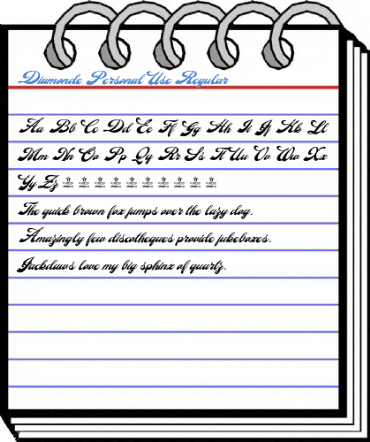 Diamonde Personal Use Regular
Aa Bb Cc Dd Ee Ff Gg Hh Ii Jj Kk Ll
Mm Nn Oo Pp Qq Rr Ss Tt Uu Vv Ww Xx
Yy Zz
The quick brown fox jumps over the lazy dog.
Amazingly few discotheques provide jukeboxes.
Jackdaws love my big sphinx of quartz.